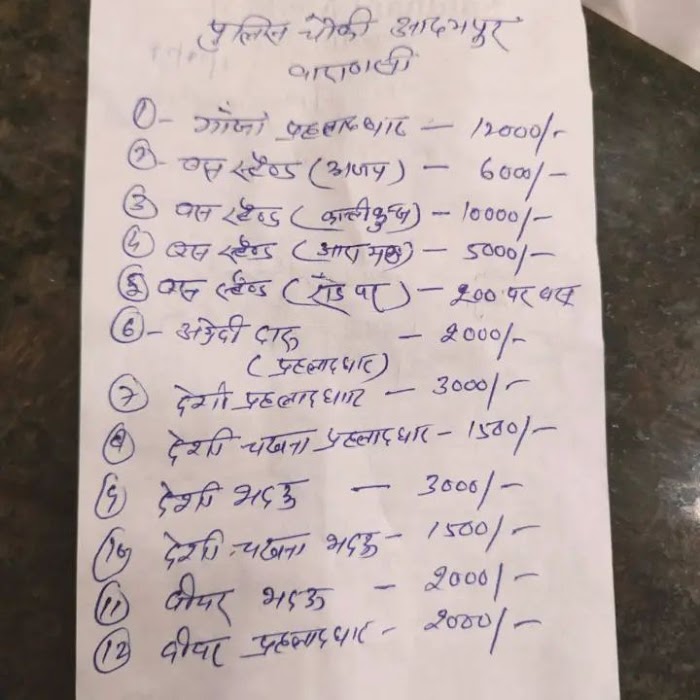 पुलिस चौकी आदमपुर
वाराणसी
① - गाँजा प्रहलादघाट — 12000/-
② - बस स्टैण्ड (अजय) — 6000/-
③ बस स्टैण्ड (कालीकुन्ज) — 10000/-
④ बस स्टैण्ड — 5000/-
⑤ बस स्टैण्ड (रोड पर) — 200 पर बस
⑥ - अंग्रेजी दारू — 2000/-
(प्रहलादघाट)
⑦ देशी प्रहलादघाट — 3000/-
⑧ देशी चखना प्रहलादघाट - 1500/-
⑨ देशी भदऊ — 3000/-
⑩ देशी चखना भदऊ - 1500/-
⑪ बीयर भदऊ — 2000/-
⑫ बीयर प्रहलादघाट - 2000/-